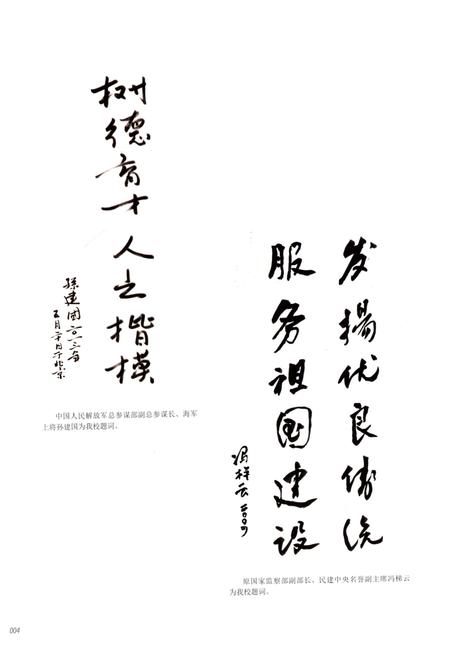 树德育才人之楷模
孙建国二〇一三年
五月二日于北京
中国人民解放军总参谋部副总参谋长、海军
上将孙建国为我校题词。
发揚优良传统
服务祖国建设
冯梯云
原国家监察部副部长、民建中央名誉副主席冯梯云
为我校题词。
004